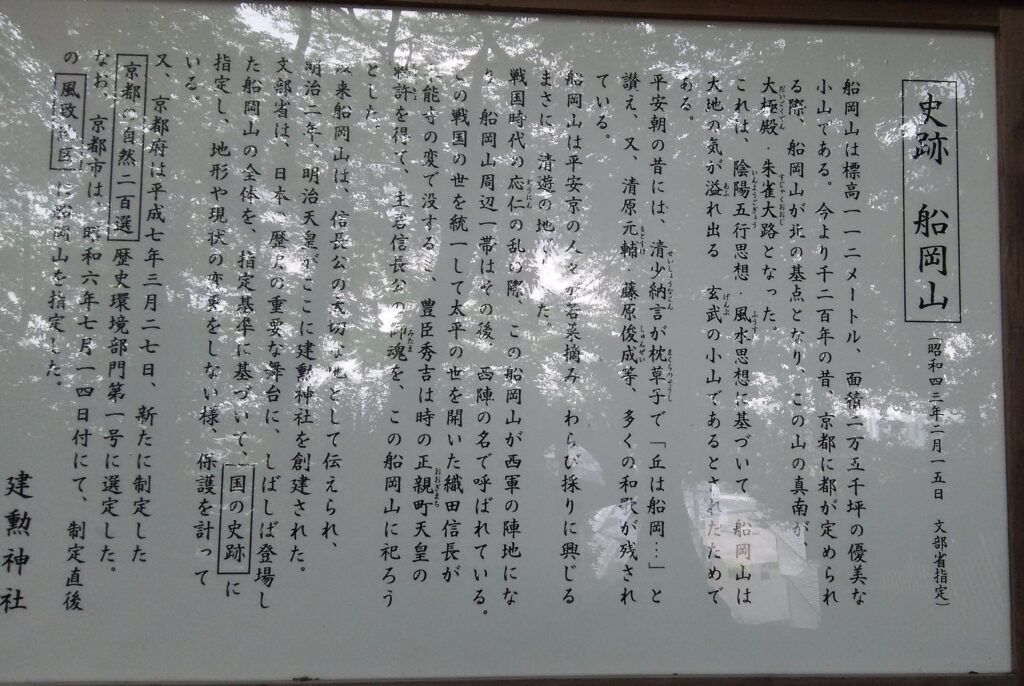 史跡 船岡山
(昭和四三年二月一五日 文部省指定)
船岡山は標高一一二メートル、面積二万五千坪の優美な
小山である。今より千二百年の昔、京都に都が定められ
る際、船岡山が北の基点となり、この山の真南が、
大極殿・朱雀大路となった。
これは、陰陽五行思想 風水思想に基づいて 船岡山は
大地の気が溢れ出る 玄武の小山であるとされたためで
ある。
平安朝の昔には、清少納言が枕草子で「丘は船岡…」と
讃え、又、清原元輔・藤原俊成等、多くの和歌が残され
ている。
船岡山は平安京の人々が若菜摘み わらび採りに興じる
まさに 清遊の地 た。
戦国時代の応仁の乱の際、この船岡山が西軍の陣地にな
り 船岡山周辺一帯はその後 西陣の名で呼ばれている。
の戦国の世を統一して太平の世を開いた織田信長が
能寺の変で没する 豊臣秀吉は時の正親町天皇の
勅許を得て、主君信長公の御魂を、この船岡山に祀ろう
とした。
来船岡山は、信長公の大切な地として伝えられ、
明治二年、明治天皇がここに建勲神社を創建された。
文部省は、日本 歴史の重要な舞台に、しばしば登場し
た船岡山の全体を、指定基準に基づいて、国の史跡に
指定し、地形や現状の変更をしない様、保護を計って
いる。
又、京都府は平成七年三月二七日、新たに制定した
京都の自然二百選 歴史環境部門第一号に選定した。
なお、京都市は 昭和六年七月一四日付にて、制定直後
の 風致地区 に船岡山を指定した。
建勲神社